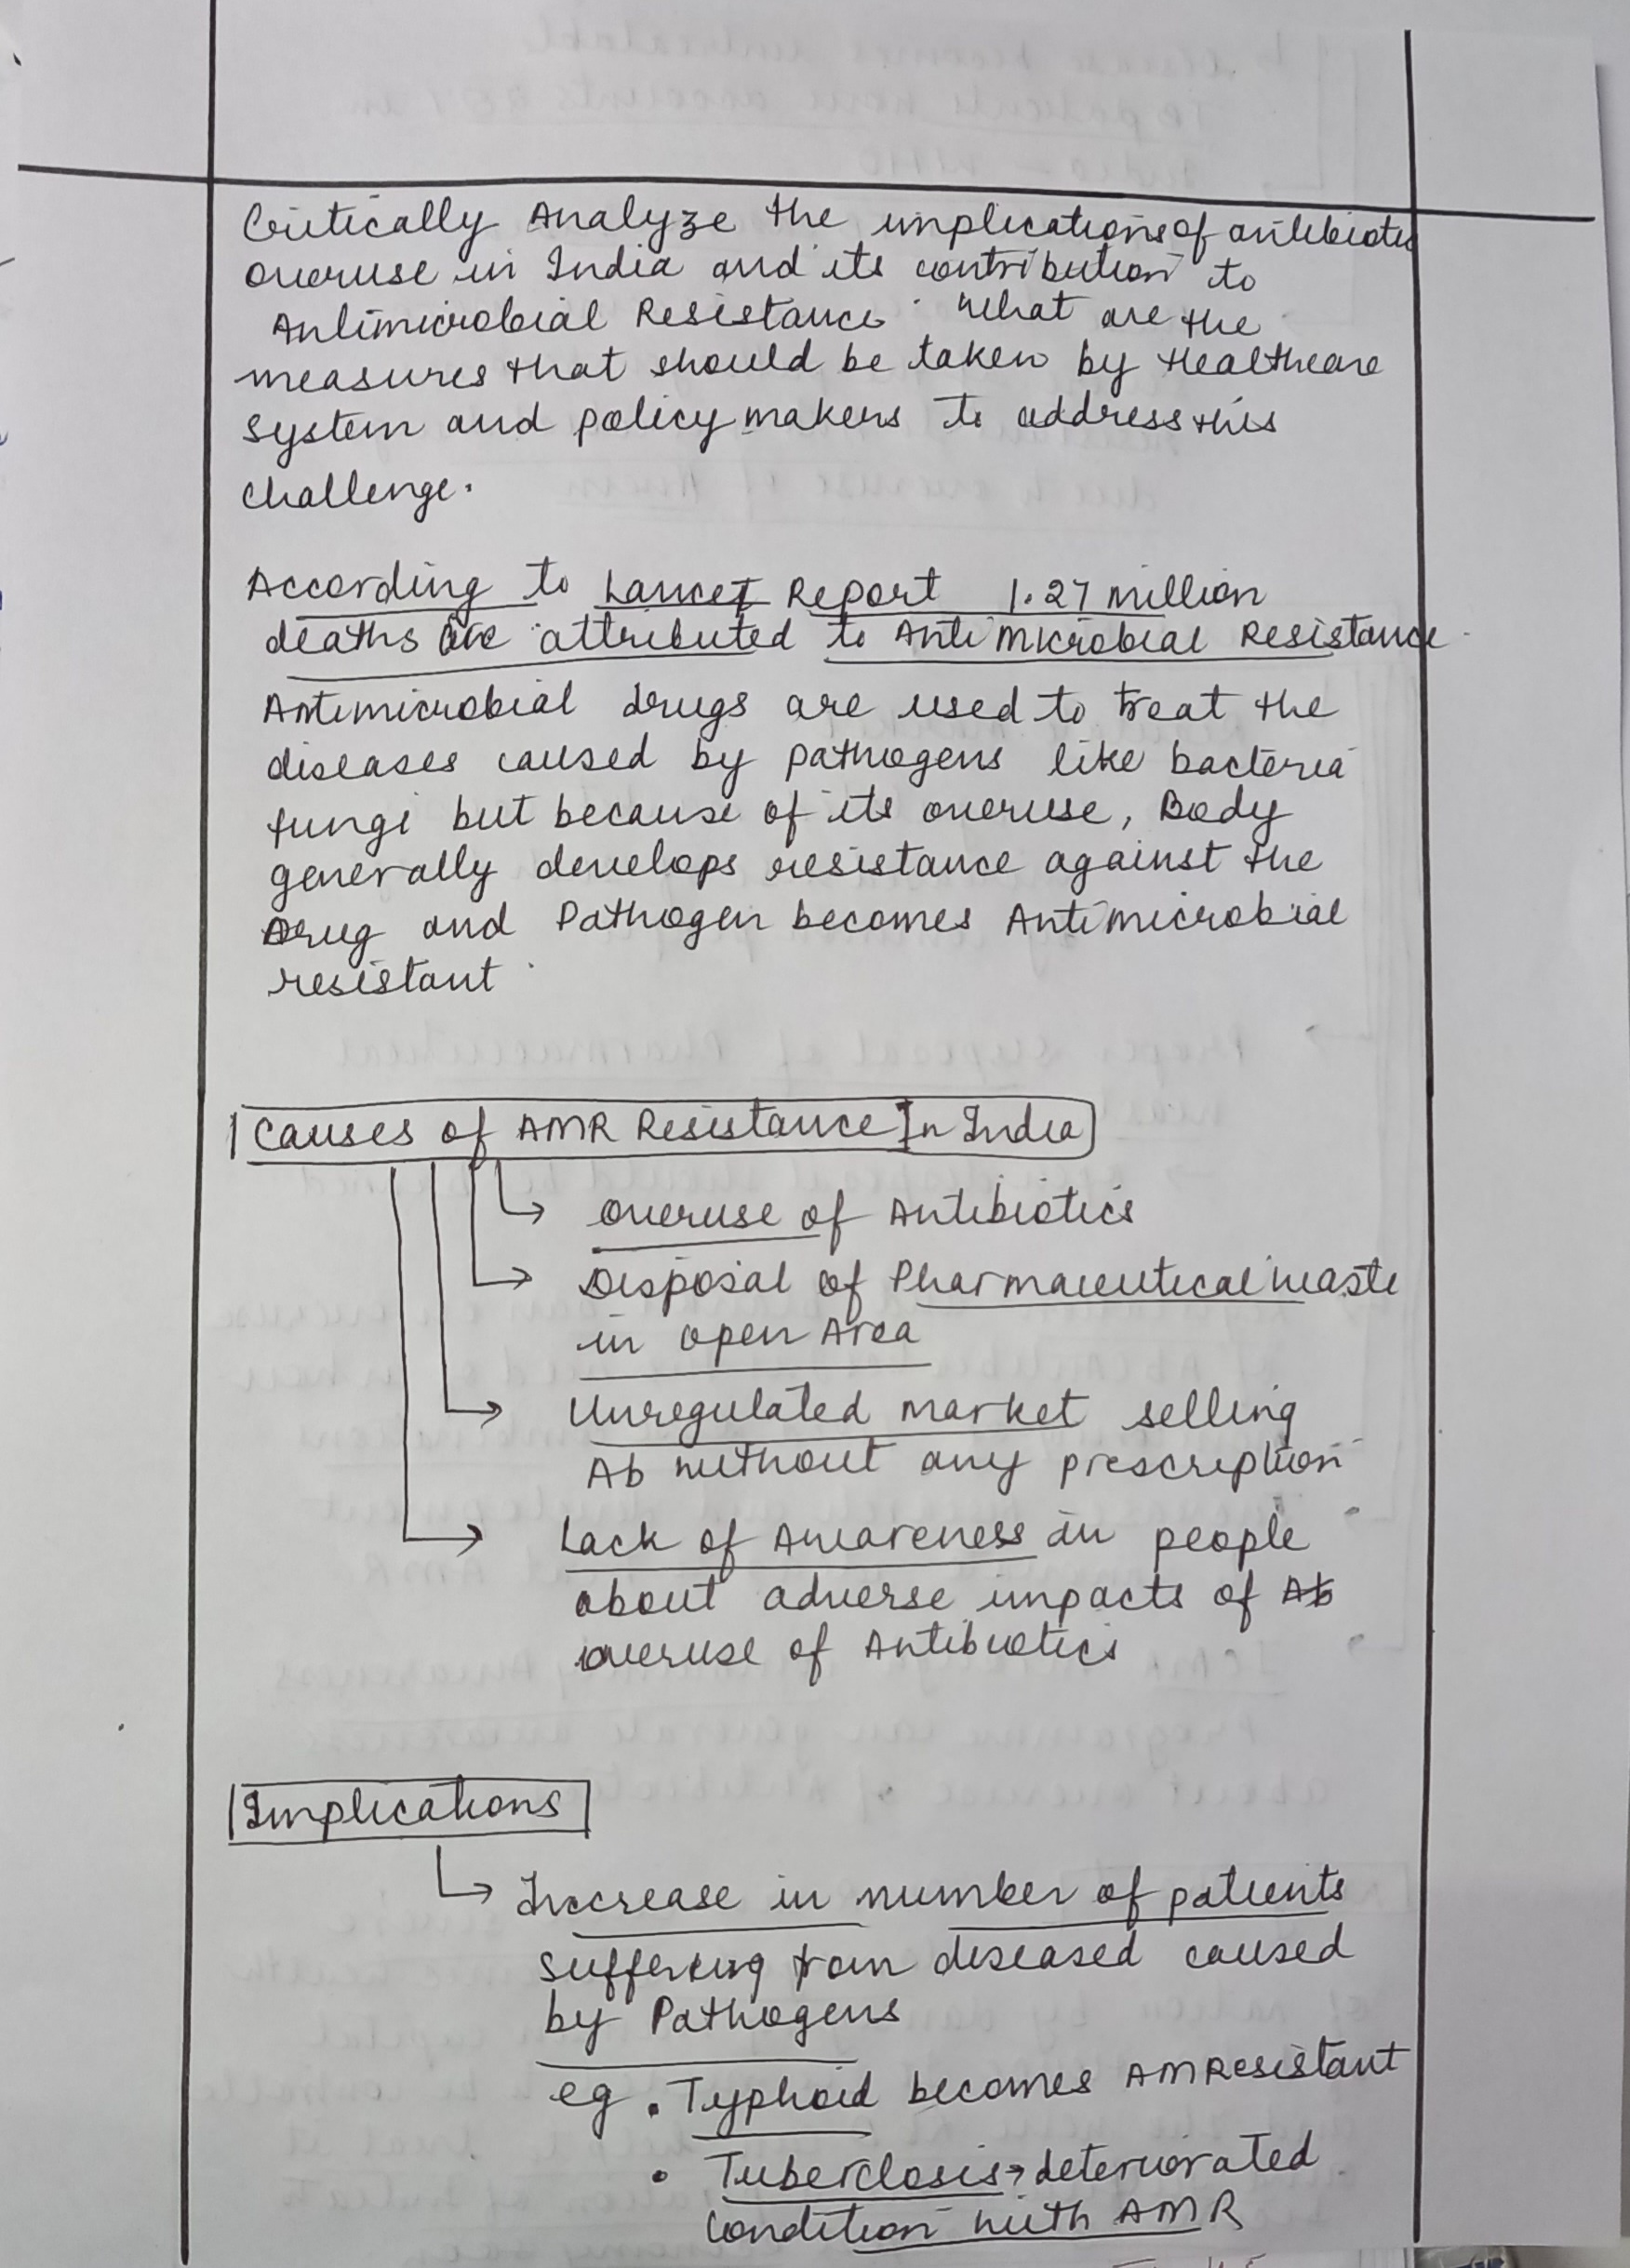 Critically Analyze the implications of antibiotic
overuse in India and its contribution to
Antimicrobial Resistance. What are the
measures that should be taken by Healthcare
system and policy makers to address this
challenge.
According to Lancet Report 1.27 million
deaths are attributed to Antimicrobial Resistance.
Antimicrobial drugs are used to treat the
diseases caused by pathogens like bacteria
fungi but because of its overuse, Body
generally develops resistance against the
Drug and Pathogen becomes Antimicrobial
resistant.
Causes of AMR Resistance In India
overuse of Antibiotics
Disposal of Pharmaceutical waste
in open Area
Unregulated market selling
Ab without any prescription
Lack of Awareness in people
about adverse impacts of Ab
overuse of Antibiotics
Implications
Increase in number of patients
suffering from diseased caused
by Pathogens
eg. Typhoid becomes AMResistant
• Tuberclosis → deteriorated
condition with AMR